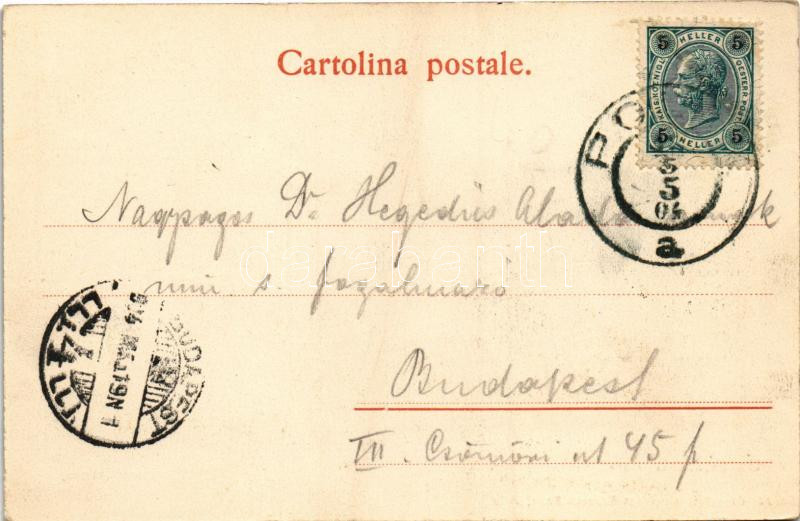 Cartolina postale.
5 HELLER 5
KAIS. KOENIGL. OESTERR. POST
5 HELLER 5
PO
5
04
a
Nagyságos Dr Hegedüs Aladár
min s. fogalmazó
Budapest
III. Csömöri út 45 f.
BUDAPEST
904 MÁJ 19 N 1
darabanth